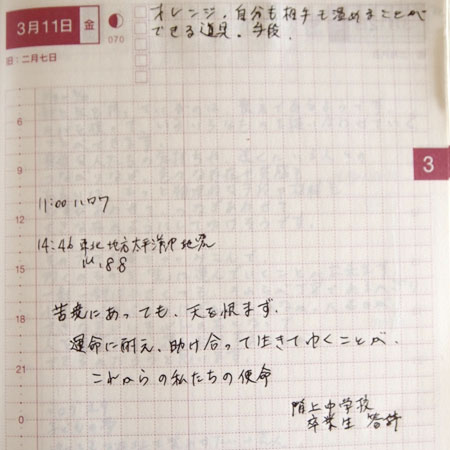 3月11日 金
070
旧:二月七日
オレンジ、自分も相手も温めることが
できる道具。手段.
3
6
9
11:00 ハロワ
12
14:46 東北地方太平洋沖地震
M 8.8
15
苦境にあっても、天を恨まず、
18
運命に耐え、助け合って生きてゆくことが、
21
これからの私たちの使命
階上中学校
卒業生 答辞
0